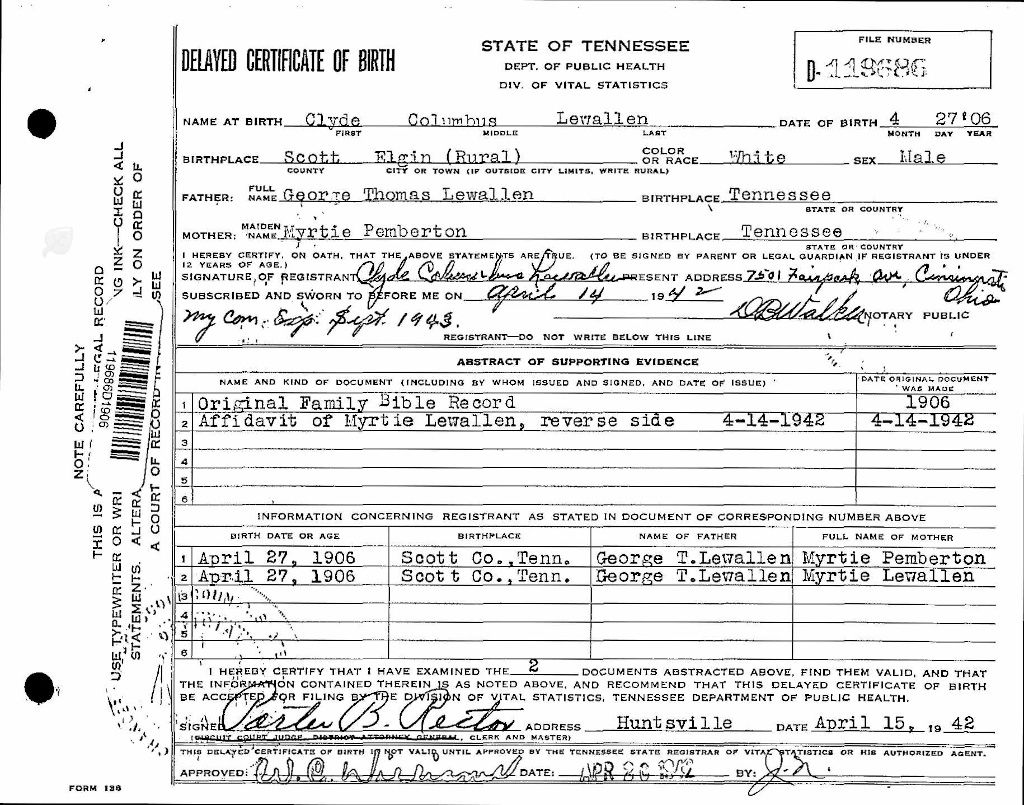 DELAYED CERTIFICATE OF BIRTH
STATE OF TENNESSEE
DEPT. OF PUBLIC HEALTH
DIV. OF VITAL STATISTICS
FILE NUMBER
D- 119686
NAME AT BIRTH Clyde Columbus Lewallen DATE OF BIRTH 4 27 '06
FIRST MIDDLE LAST MONTH DAY YEAR
BIRTHPLACE Scott Elgin (Rural) COLOR OR RACE White SEX Male
COUNTY CITY OR TOWN (IF OUTSIDE CITY LIMITS, WRITE RURAL)
FATHER: FULL NAME George Thomas Lewallen BIRTHPLACE Tennessee
STATE OR COUNTRY
MOTHER: MAIDEN NAME Myrtie Pemberton BIRTHPLACE Tennessee
STATE OR COUNTRY
I HEREBY CERTIFY, ON OATH, THAT THE ABOVE STATEMENTS ARE TRUE. (TO BE SIGNED BY PARENT OR LEGAL GUARDIAN IF REGISTRANT IS UNDER
12 YEARS OF AGE.)
SIGNATURE OF REGISTRANT Clyde Columbus Lewallen PRESENT ADDRESS 7501 Fairpark Ave, Cincinnati
Ohio
SUBSCRIBED AND SWORN TO BEFORE ME ON April 14 1942
My Com. Exp. Sept. 1943. D B Walker NOTARY PUBLIC
REGISTRANT—DO NOT WRITE BELOW THIS LINE
ABSTRACT OF SUPPORTING EVIDENCE
NAME AND KIND OF DOCUMENT (INCLUDING BY WHOM ISSUED AND SIGNED, AND DATE OF ISSUE) DATE ORIGINAL DOCUMENT WAS MADE
1 Original Family Bible Record 1906
2 Affidavit of Myrtie Lewallen, reverse side 4-14-1942 4-14-1942
3
4
5
6
INFORMATION CONCERNING REGISTRANT AS STATED IN DOCUMENT OF CORRESPONDING NUMBER ABOVE
BIRTH DATE OR AGE BIRTHPLACE NAME OF FATHER FULL NAME OF MOTHER
1 April 27, 1906 Scott Co.,Tenn. George T.Lewallen Myrtie Pemberton
2 April 27, 1906 Scott Co.,Tenn. George T.Lewallen Myrtie Lewallen
3
4
5
6
I HEREBY CERTIFY THAT I HAVE EXAMINED THE 2 DOCUMENTS ABSTRACTED ABOVE, FIND THEM VALID, AND THAT
THE INFORMATION CONTAINED THEREIN IS AS NOTED ABOVE, AND RECOMMEND THAT THIS DELAYED CERTIFICATE OF BIRTH
BE ACCEPTED FOR FILING BY THE DIVISION OF VITAL STATISTICS, TENNESSEE DEPARTMENT OF PUBLIC HEALTH.
SIGNED B. Rector ADDRESS Huntsville DATE April 15, 1942
(CIRCUIT COURT JUDGE, DISTRICT ATTORNEY GENERAL, CLERK AND MASTER)
THIS DELAYED CERTIFICATE OF BIRTH IS NOT VALID UNTIL APPROVED BY THE TENNESSEE STATE REGISTRAR OF VITAL STATISTICS OR HIS AUTHORIZED AGENT.
APPROVED: DATE: APR 1942 BY: J.N.
FORM 136
NOTE CAREFULLY
THIS IS A LEGAL RECORD
119686D1906
USE TYPEWRITER OR WRI NG INK—CHECK ALL
STATEMENTS. ALTERA LY ON ORDER OF
A COURT OF RECORD SEE